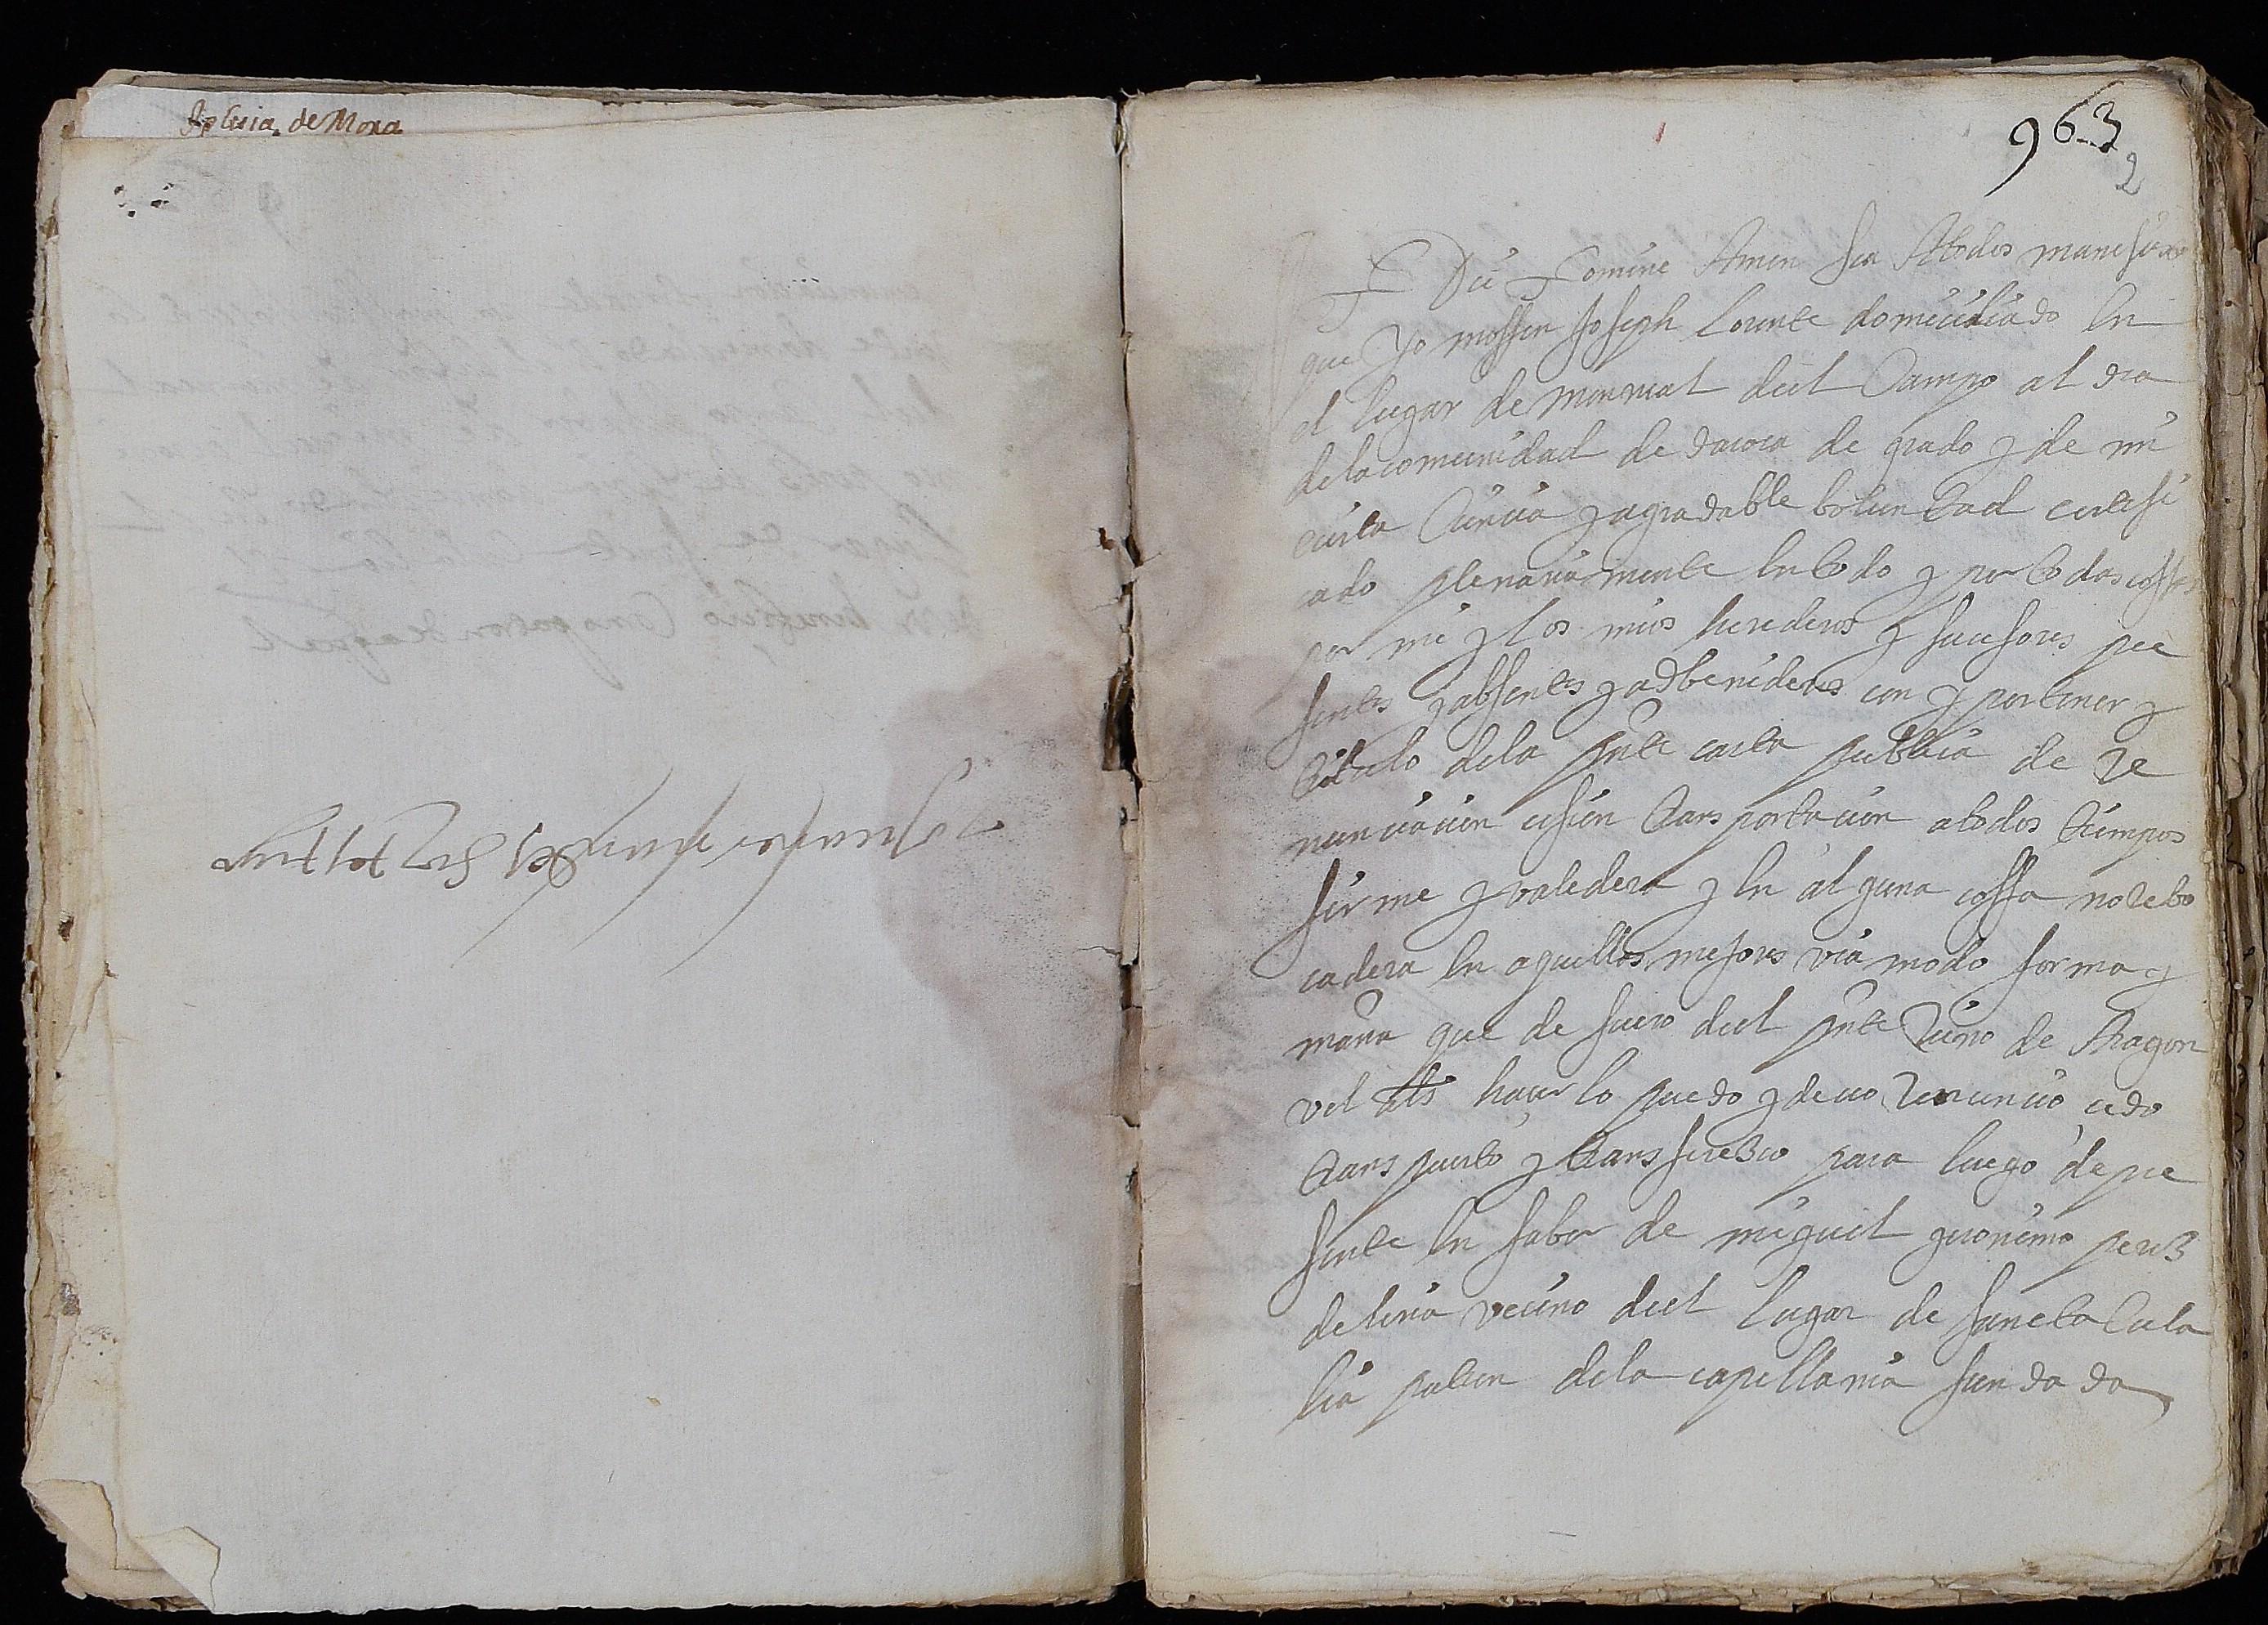 Iglesia de Mora
963
2
Dei Nomine Amen sea Atodos manifiesto
que Yo mossen Joseph Lorente domiciliado en
el lugar de monrreal del Campo al dea
de la comunidad de daroca de grado y de mi
cierta Ciencia y agradable boluntad certifi
cado plenariamente en todo y por todas cossas
por mi y los mios herederos y sucesores pre
sentes y absentes y adbenideros con y por tenor y
titulo dela pnte carta publica de re
nunciacion cesion transportacion a todos tiempos
firme y valedera y en alguna cossa no rebo
cadera en aquellas mejores via modo forma y
mana que de fuero del pnte Reino de Aragon
vel als hacer lo puedo y devo Renuncio cedo
transpuerto y transfiero para luego de pre
sente en fabor de miguel geronimo perez
de liria vecino del lugar de sancta Eula
lia patron dela capellania fundada